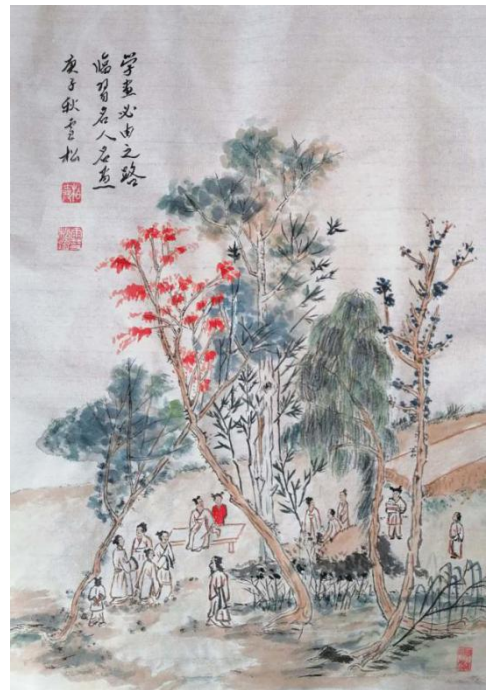 学画必由之路
临习名人名画
庚子秋雪松